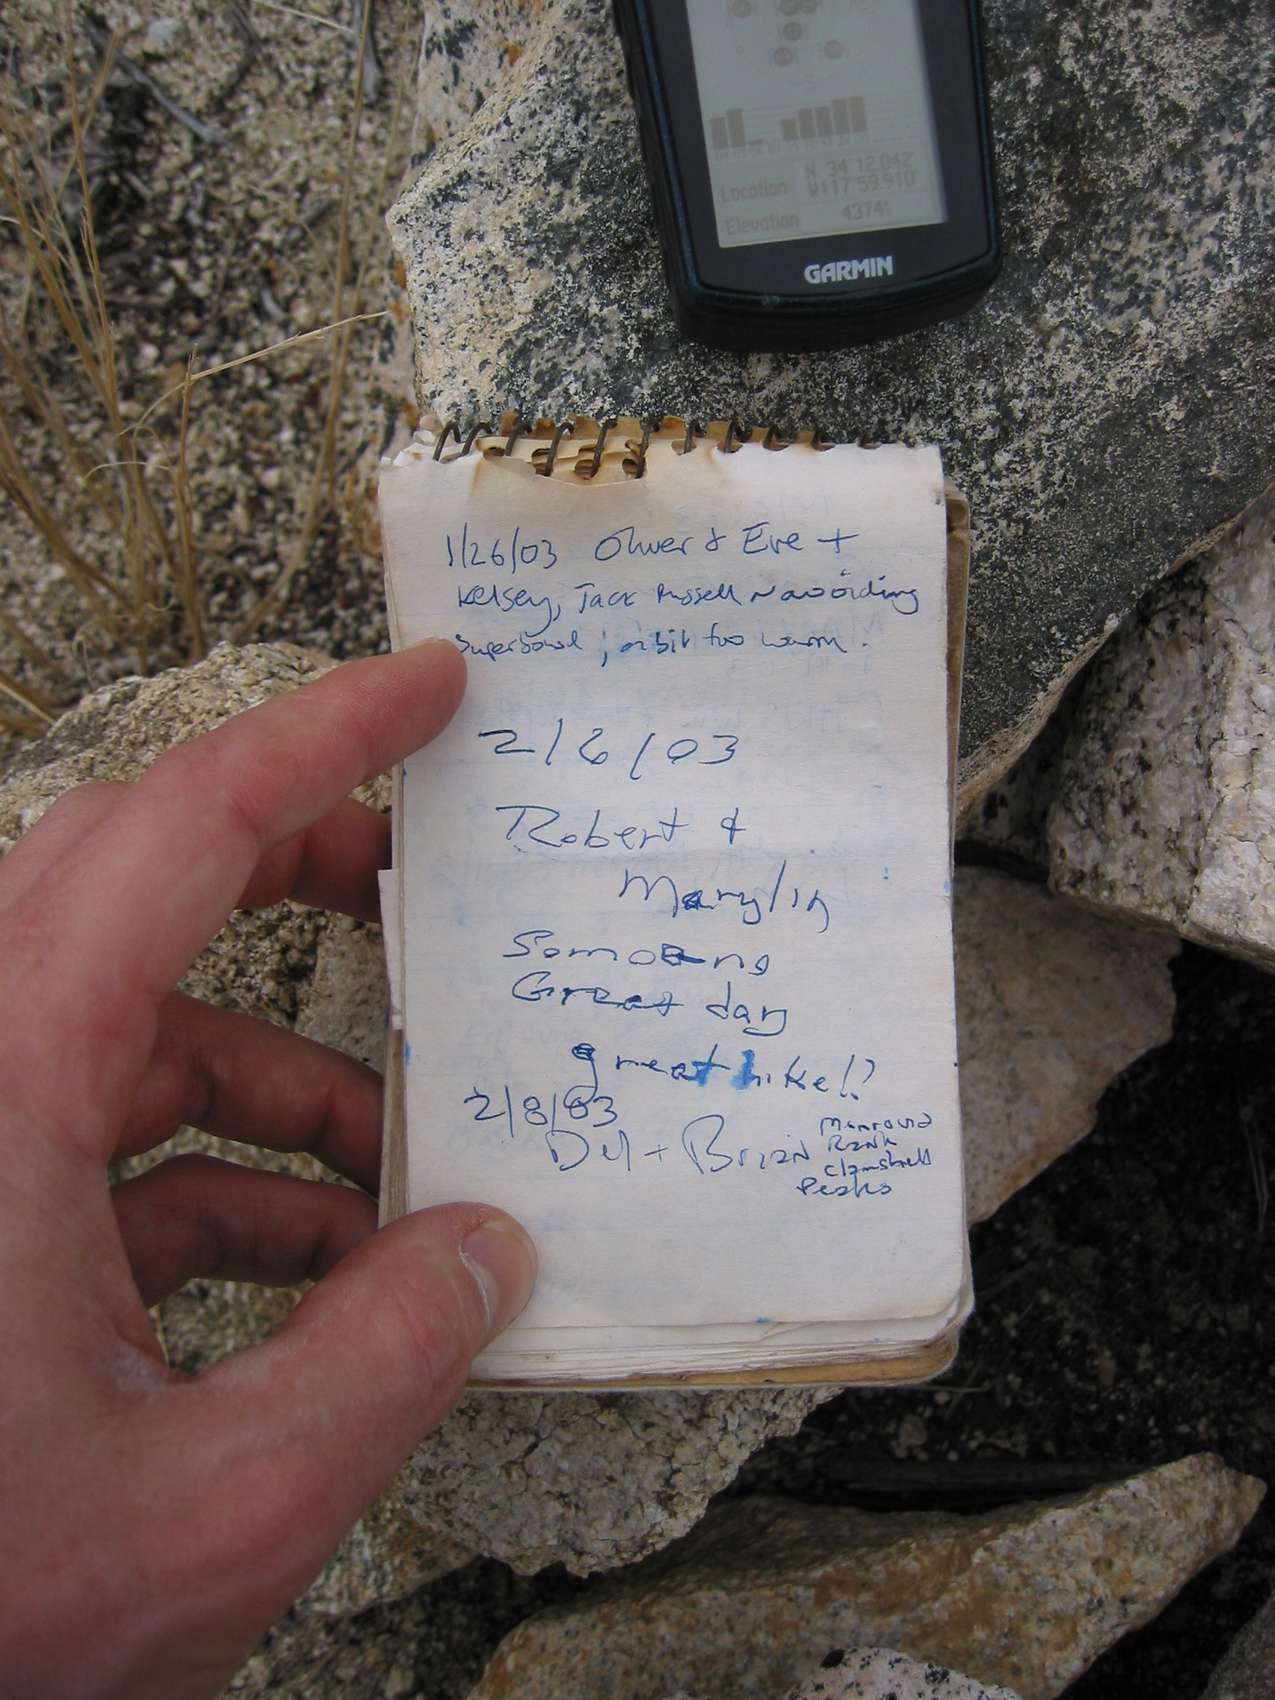 Location N 34 12.042'
W117 59.910'
Elevation 4374
GARMIN
1/26/03 Oliver & Eve +
Kelsey, Jack Russell avoiding
Superbowl; a bit too warm.
2/6/03
Robert &
Marylin
Great day
great hike!?
2/8/03
+ Brian Monrovia
Rank
Clamshell
Peaks